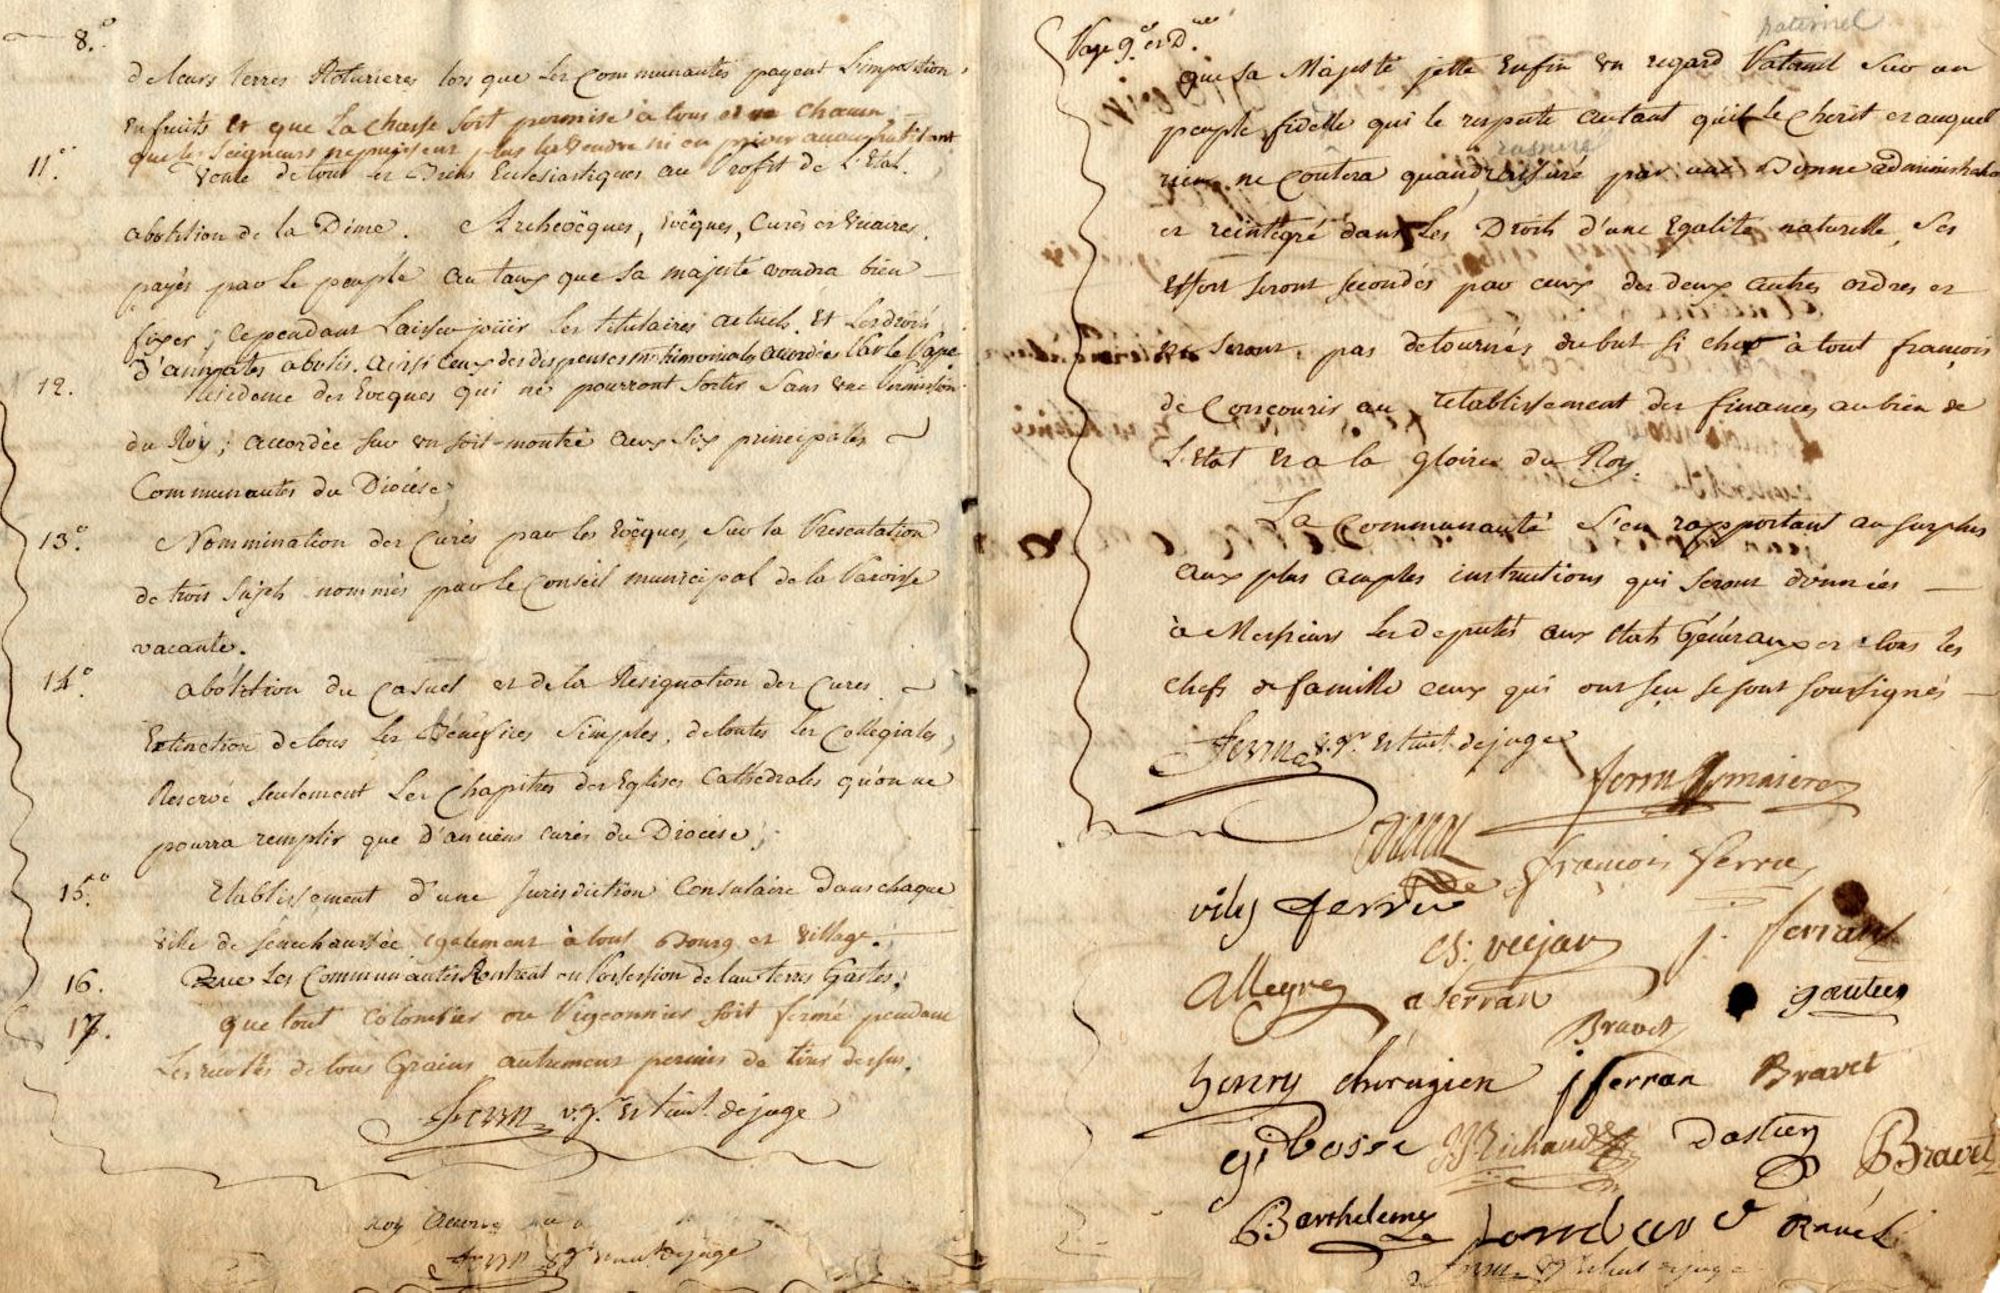 8.°
de leurs terres Roturieres lors que les Communautés payent l'imposition
en fruits et que la chasse soit permise à tous et un chacun
que les Seigneurs ne puissent plus la vendre ni en priver aucun habitant
11.° vente de tous les Biens Eclesiastiques au Profit de l'Etat.
abolition de la Dime. Archevêques, evêques, Curés et vicaires,
payés par le peuple au taux que sa majesté voudra bien
fixer; cependant laisser joüir les titulaires actuels. Et les droits
d'annates abolis. ainsi ceux des dispenses matrimoniales accordées Par le Pape
12. Residence des Eveques qui ne pourront sortir sans une Permission
du Roy; accordée sur un soit-montré aux six principales
Communautés du Diocèse
13.° Nommination des Curés par les Evêques, sur la Presentation
de trois sujets nommés par le Conseil municipal de la Paroisse
vacante.
14.° abolition du Casuel et de la Resignation des Cures.
Extinction de tous les Bénéfices simples, de toutes les Collegiales,
Reservé seulement les Chapitres des Eglises Cathédrales qu'on ne
pourra remplir que d'anciens curés du Diocèse;
15.° Etablissement d'une Jurisdiction Consulaire dans chaque
ville de senechaussée egalement à tout Bourg et village.
16. Que les Communautés Rentrent en Possession de leur terres Gastes;
17. que tout colombier ou Pigeonnier soit fermé pendant
les recoltes de tous Grains autrement permis de tirer dessus.
Ferrn v.gr. et lieut. de juge
Ferrn v.gr lieut de juge
Page 9.e et D.re
paternel
que sa Majesté jette enfin un regard Paternel sur un
peuple fidelle qui le respecte autant qu'il le cherit et auquel
rassuré
rien ne coutera quand rassuré par une Bonne administration
et reintegré dans les Droits d'une Egalité naturelle, ses
effort seront secondés par ceux des deux autres ordres et
ne seront pas detournés du but si cher à tout françois
de Concourir au retablissement des finances au bien de
l'Etat et a la gloire du Roy.
La Communauté s'en rapportant au surplus
aux plus amples instructions qui seront données
à Messieurs les deputés aux Etats Généraux et tous les
chefs de famille ceux qui ont sçu se sont soussignés
Ferrn v.gr. et lieut. de juge
ferrn maire
françois ferran
Ch. vecjan
j. ferrant
Allegre
a ferran
gautier
Bravet
henry chirugien
j ferran
Bravet
gibosse
JJ Richaud
dastier
Bravet
Barthelemy
Ravel